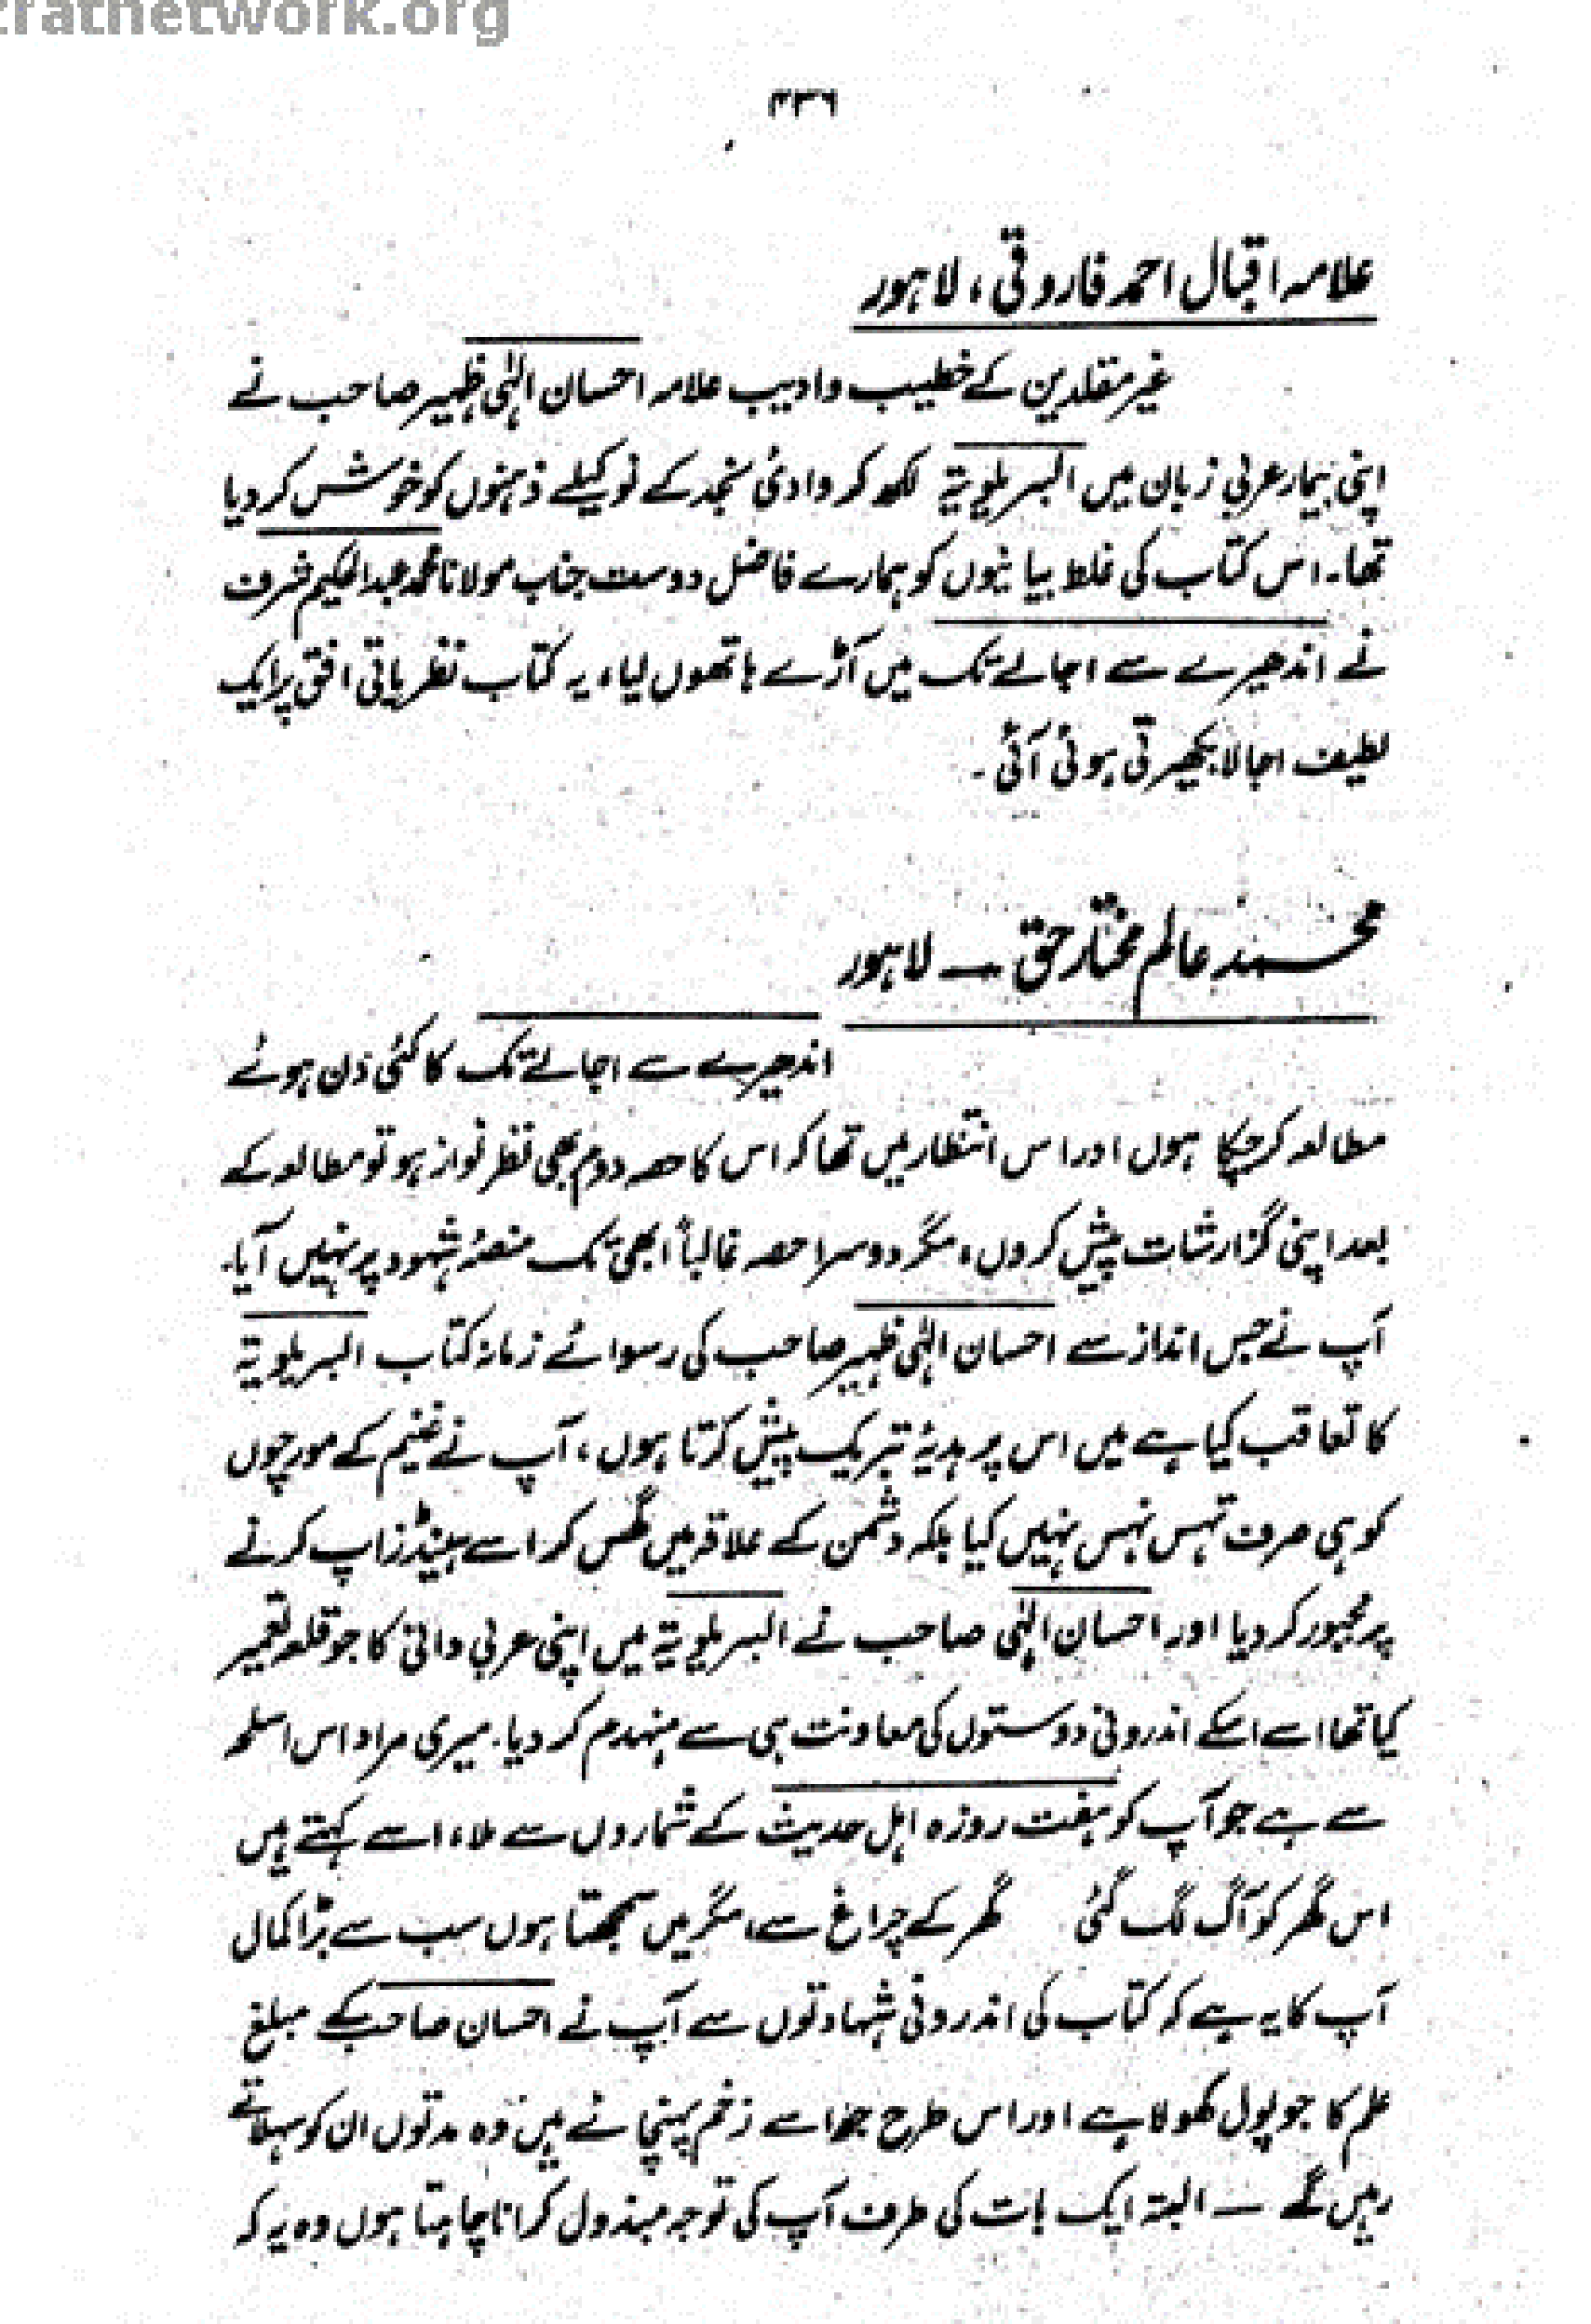 zratnetwork.org
۴۳۶
علامہ اقبال احمد فاروقی، لاہور
غیر مقلدین کے خطیب و ادیب علامہ احسان الٰہی ظہیر صاحب نے
اپنی بیمار عربی زبان میں البریلویۃ لکھ کر وادیٔ نجد کے نوکیلے ذہنوں کو خوش کر دیا
تھا۔ اس کتاب کی غلط بیانیوں کو ہمارے فاضل دوست جناب مولانا محمد عبدالحکیم شرف
نے اندھیرے سے اجالے تک میں آڑے ہاتھوں لیا، یہ کتاب نظریاتی افق پر ایک
لطیف اجالا بکھیرتی ہوئی آئی ۔
محمد عالم مختار حق ۔ لاہور
اندھیرے سے اجالے تک کا کئی دن ہوئے
مطالعہ کر چکا ہوں اور اس انتظار میں تھا کہ اس کا حصہ دوم بھی نظر نواز ہو تو مطالعہ کے
بعد اپنی گزارشات پیش کروں، مگر دوسرا حصہ غالباً ابھی تک منصۂ شہود پر نہیں آیا۔
آپ نے جس انداز سے احسان الٰہی ظہیر صاحب کی رسوائے زمانہ کتاب البریلویۃ
کا تعاقب کیا ہے میں اس پر ہدیۂ تبریک پیش کرتا ہوں، آپ نے غنیم کے مورچوں
کو ہی صرف تہس نہس نہیں کیا بلکہ دشمن کے علاقہ میں گھس کر اسے ہینڈز اپ کرنے
پر مجبور کر دیا اور احسان الٰہی صاحب نے البریلویۃ میں اپنی عربی دانی کا جو قلعہ تعمیر
کیا تھا اسے اسکے اندرونی دوستوں کی معاونت ہی سے منہدم کر دیا۔ میری مراد اس اسلحہ
سے ہے جو آپ کو ہفت روزہ اہل حدیث کے شماروں سے ملا، اسے کہتے ہیں
اس گھر کو آگ لگ گئی گھر کے چراغ سے، مگر میں سمجھتا ہوں سب سے بڑا کمال
آپ کا یہ ہے کہ کتاب کی اندرونی شہادتوں سے آپ نے احسان صاحب کے مبلغ
علم کا جو پول کھولا ہے اور اس طرح جو اسے زخم پہنچائے ہیں وہ مدتوں ان کو سہلاتے
رہیں گے ۔ البتہ ایک بات کی طرف آپ کی توجہ مبذول کرانا چاہتا ہوں وہ یہ کہ